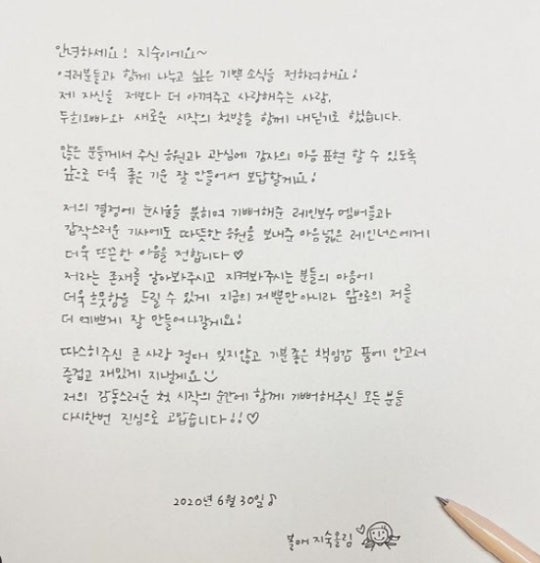 안녕하세요! 지숙이에요~
여러분들과 함께 나누고 싶은 기쁜 소식을 전하려해요!
제 자신을 저보다 더 아껴주고 사랑해주는 사람,
두희오빠와 새로운 시작의 첫발을 함께 내딛기로 했습니다.
많은 분들께서 주신 응원과 관심에 감사의 마음 표현 할 수 있도록
앞으로 더욱 좋은 기운 잘 만들어서 보답할게요!
저의 결정에 눈시울을 붉히며 기뻐해준 레인보우 멤버들과
갑작스러운 기사에도 따뜻한 응원을 보내준 마음넓은 레인너스에게
더욱 뜨끈한 마음을 전합니다♡
저라는 존재를 알아봐주시고 지켜봐주시는 분들의 마음에
더욱 흐뭇함을 드릴 수 있게 지금의 저뿐만아니라 앞으로의 저를
더 예쁘게 잘 만들어나갈게요!
따스히주신 큰 사랑 절대 잊지않고 기분좋은 책임감 품에 안고서
즐겁고 재밌게 지낼게요
저의 감동스러운 첫 시작의 순간에 함께 기뻐해주신 모든 분들
다시한번 진심으로 고맙습니다!!♡
2020년 6월 30일♪
지숙올림♡